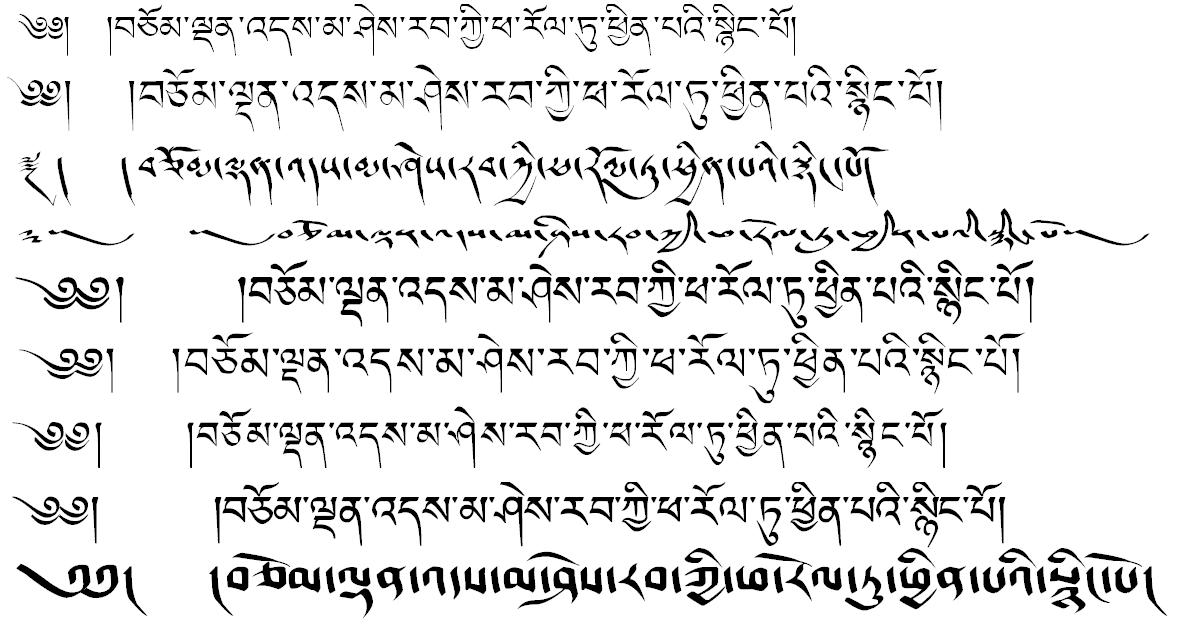 ༄༅།  །བཅོམ་ལྡན་འདས་མ་ཤེས་རབ་ཀྱི་ཕ་རོལ་ཏུ་ཕྱིན་པའི་སྙིང་པོ།
༄༅།  །བཅོམ་ལྡན་འདས་མ་ཤེས་རབ་ཀྱི་ཕ་རོལ་ཏུ་ཕྱིན་པའི་སྙིང་པོ།
༄།  །བཅོམ་ལྡན་འདས་མ་ཤེས་རབ་ཀྱི་ཕ་རོལ་ཏུ་ཕྱིན་པའི་སྙིང་པོ།
༄།  །བཅོམ་ལྡན་འདས་མ་ཤེས་རབ་ཀྱི་ཕ་རོལ་ཏུ་ཕྱིན་པའི་སྙིང་པོ།
༄༅།  །བཅོམ་ལྡན་འདས་མ་ཤེས་རབ་ཀྱི་ཕ་རོལ་ཏུ་ཕྱིན་པའི་སྙིང་པོ།
༄༅།  །བཅོམ་ལྡན་འདས་མ་ཤེས་རབ་ཀྱི་ཕ་རོལ་ཏུ་ཕྱིན་པའི་སྙིང་པོ།
༄༅།  །བཅོམ་ལྡན་འདས་མ་ཤེས་རབ་ཀྱི་ཕ་རོལ་ཏུ་ཕྱིན་པའི་སྙིང་པོ།
༄༅།  །བཅོམ་ལྡན་འདས་མ་ཤེས་རབ་ཀྱི་ཕ་རོལ་ཏུ་ཕྱིན་པའི་སྙིང་པོ།
༄༅།  །བཅོམ་ལྡན་འདས་མ་ཤེས་རབ་ཀྱི་ཕ་རོལ་ཏུ་ཕྱིན་པའི་སྙིང་པོ།